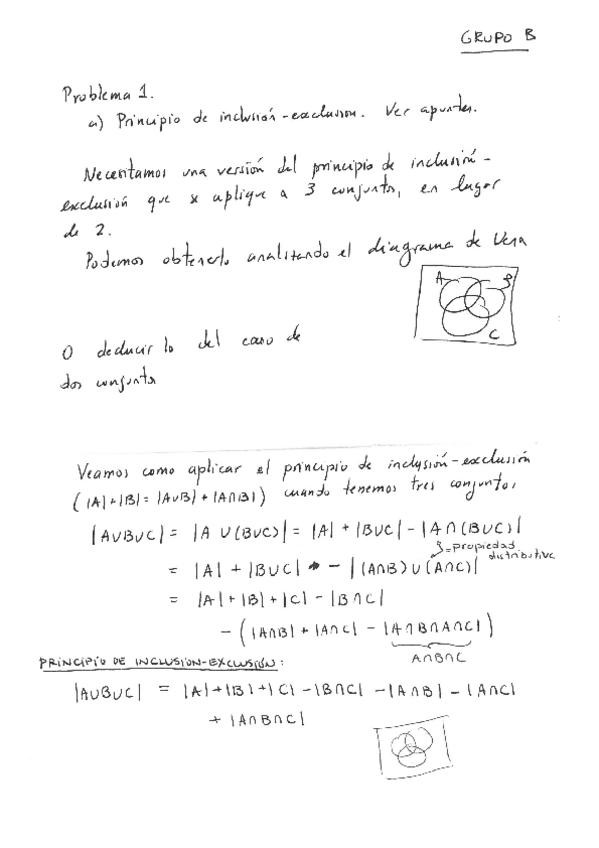 GRUPO B
Problema 1.
a) Principio de inclusión-exclusion. Ver apuntes.
Necesitamos una versión del principio de inclusión-
exclusión que se aplique a 3 conjuntos, en lugar
de 2.
Podemos obtenerlo analizando el diagrama de Venn
A B
C
O deducirlo del caso de
dos conjuntos
Veamos como aplicar el principio de inclusión-exclusión
(|A|+|B|=|A∪B|+|A∩B|) cuando tenemos tres conjuntos
|A∪B∪C| = |A ∪ (B∪C)| = |A| + |B∪C| - |A∩(B∪C)|
= propiedad
distributiva
= |A| + |B∪C| - |(A∩B)∪(A∩C)|
= |A| + |B| + |C| - |B∩C|
- (|A∩B| + |A∩C| - |A∩B∩A∩C|)
A∩B∩C
PRINCIPIO DE INCLUSIÓN-EXCLUSIÓN:
|A∪B∪C| = |A|+|B|+|C| - |B∩C| - |A∩B| - |A∩C|
+ |A∩B∩C|